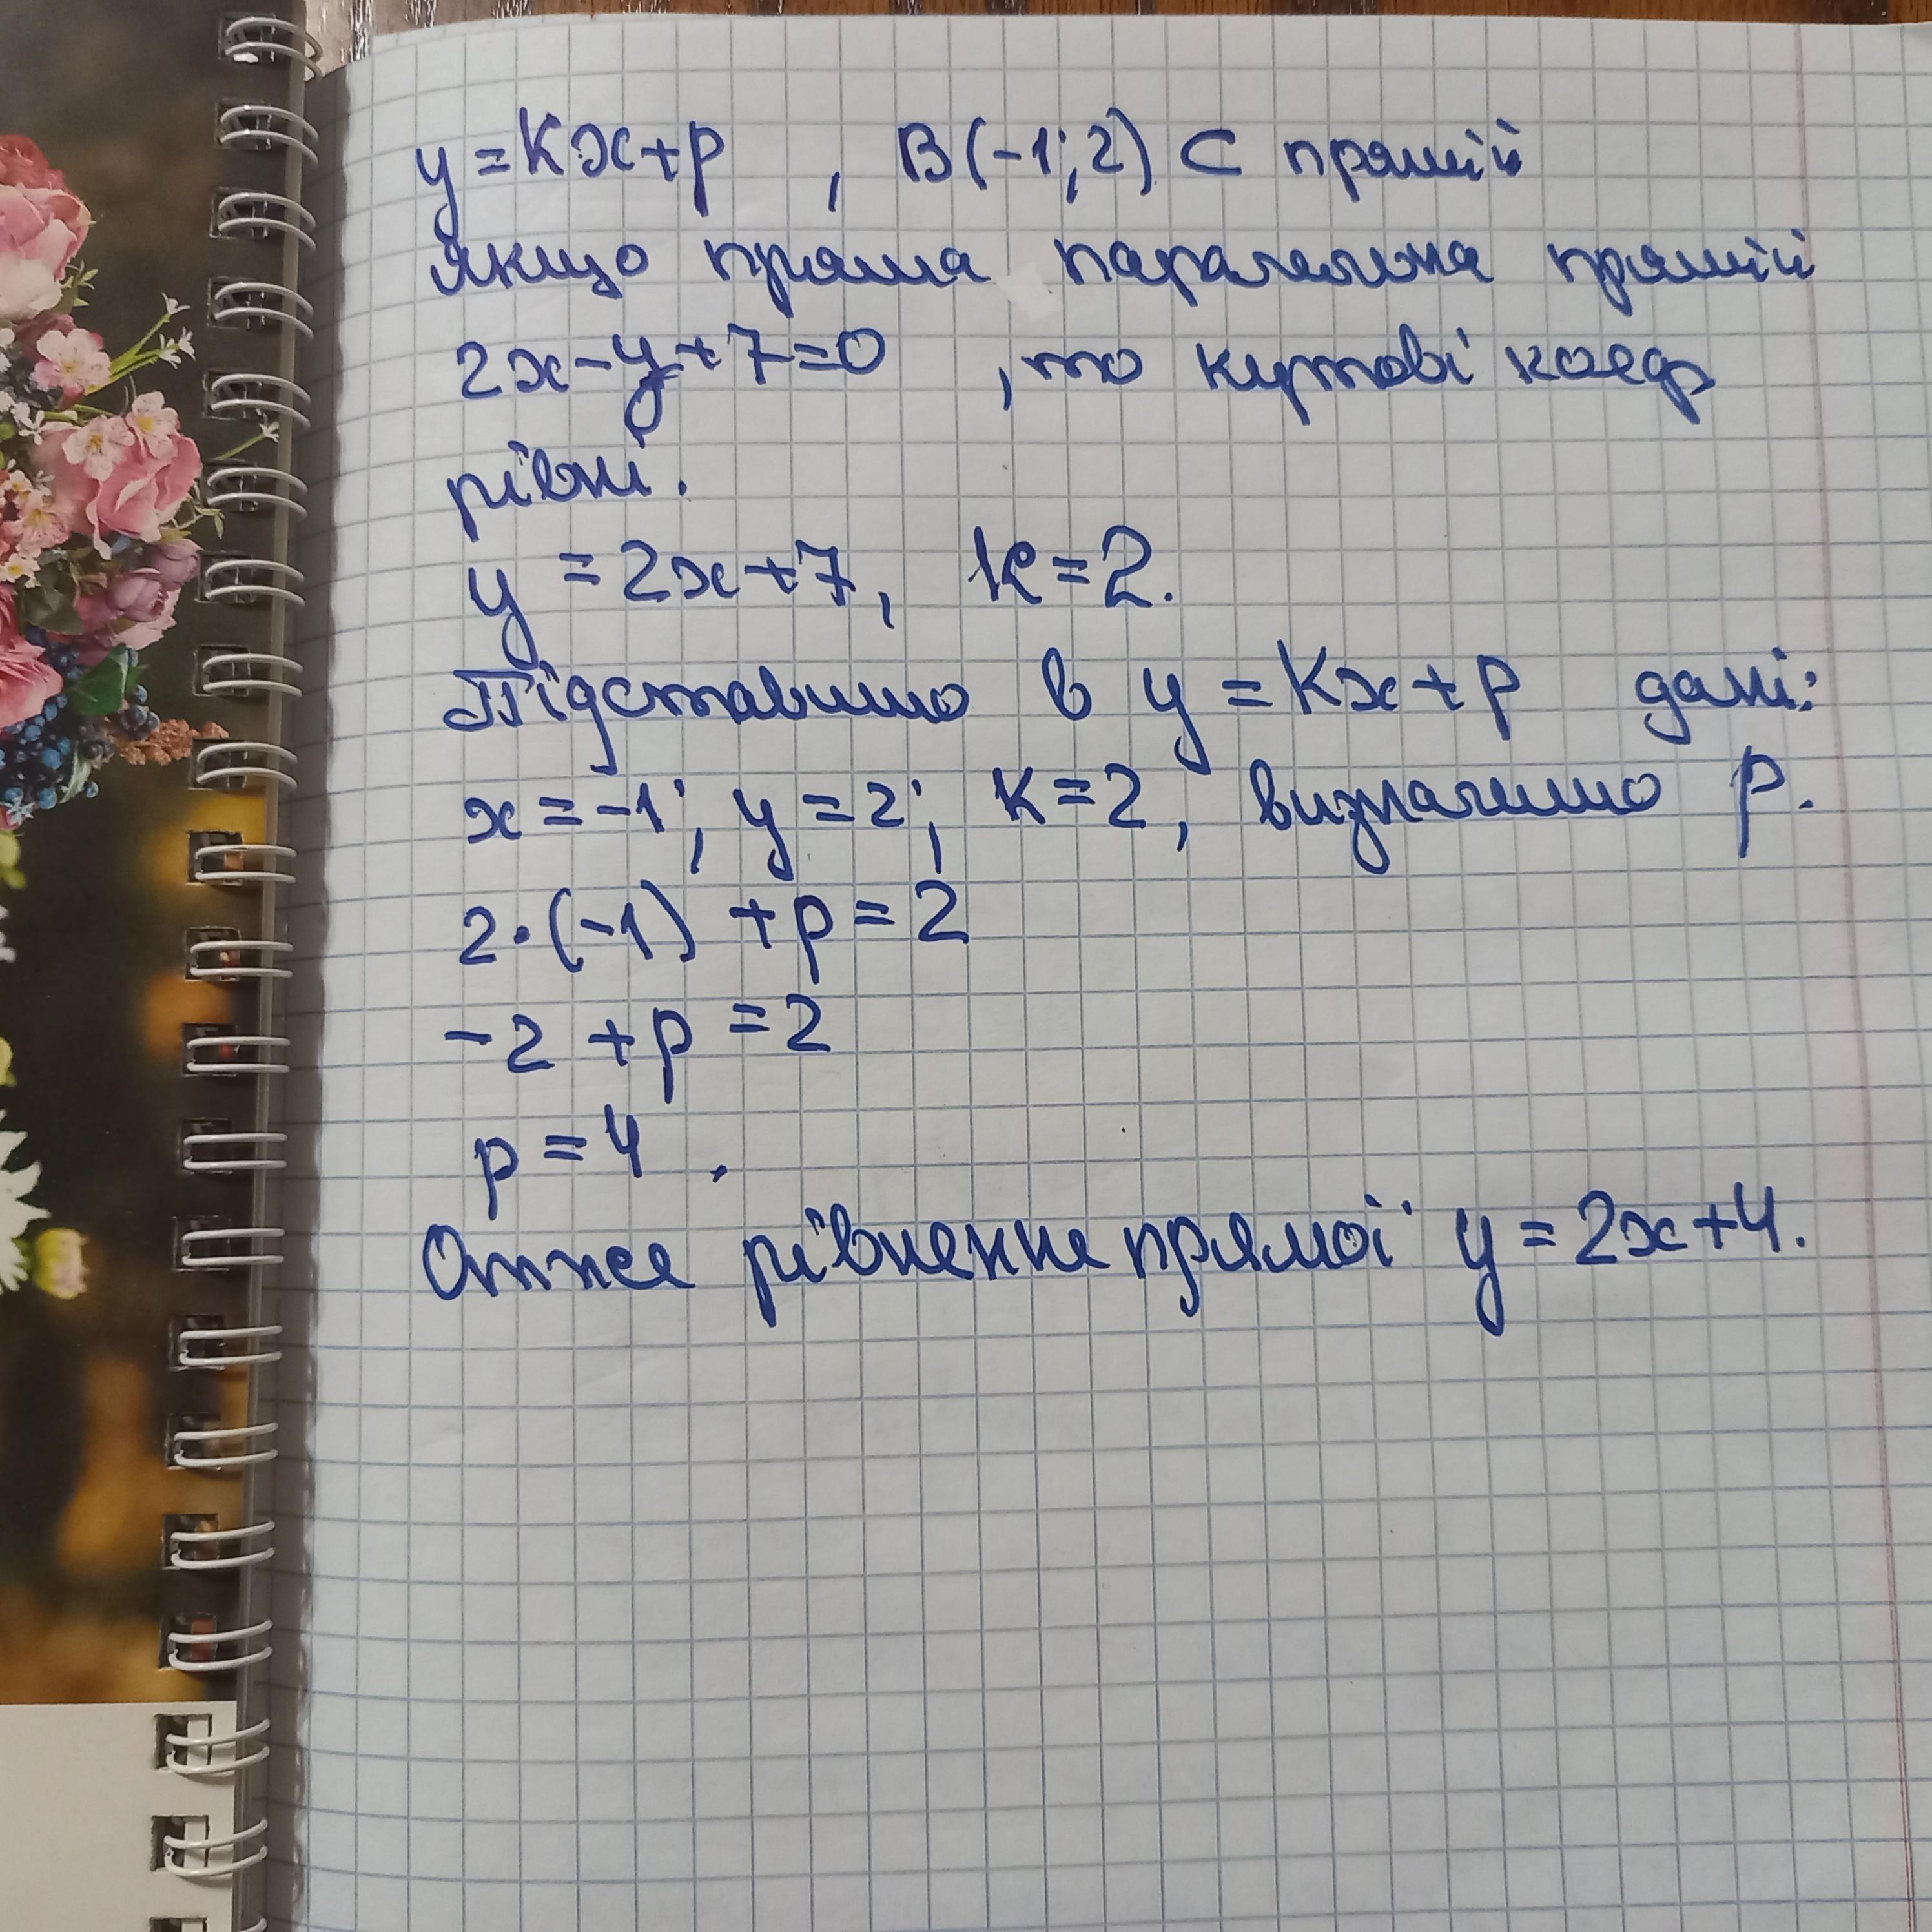 y = kx + p , B(-1; 2) ⊂ прямій
якщо пряма паралельна прямій
2x - y + 7 = 0 , то кутові коеф
рівні.
y = 2x + 7, k = 2.
Підставимо в y = kx + p дані:
x = -1; y = 2; k = 2, визначимо p.
2·(-1) + p = 2
-2 + p = 2
p = 4 .
Отже рівнення прямої y = 2x + 4.